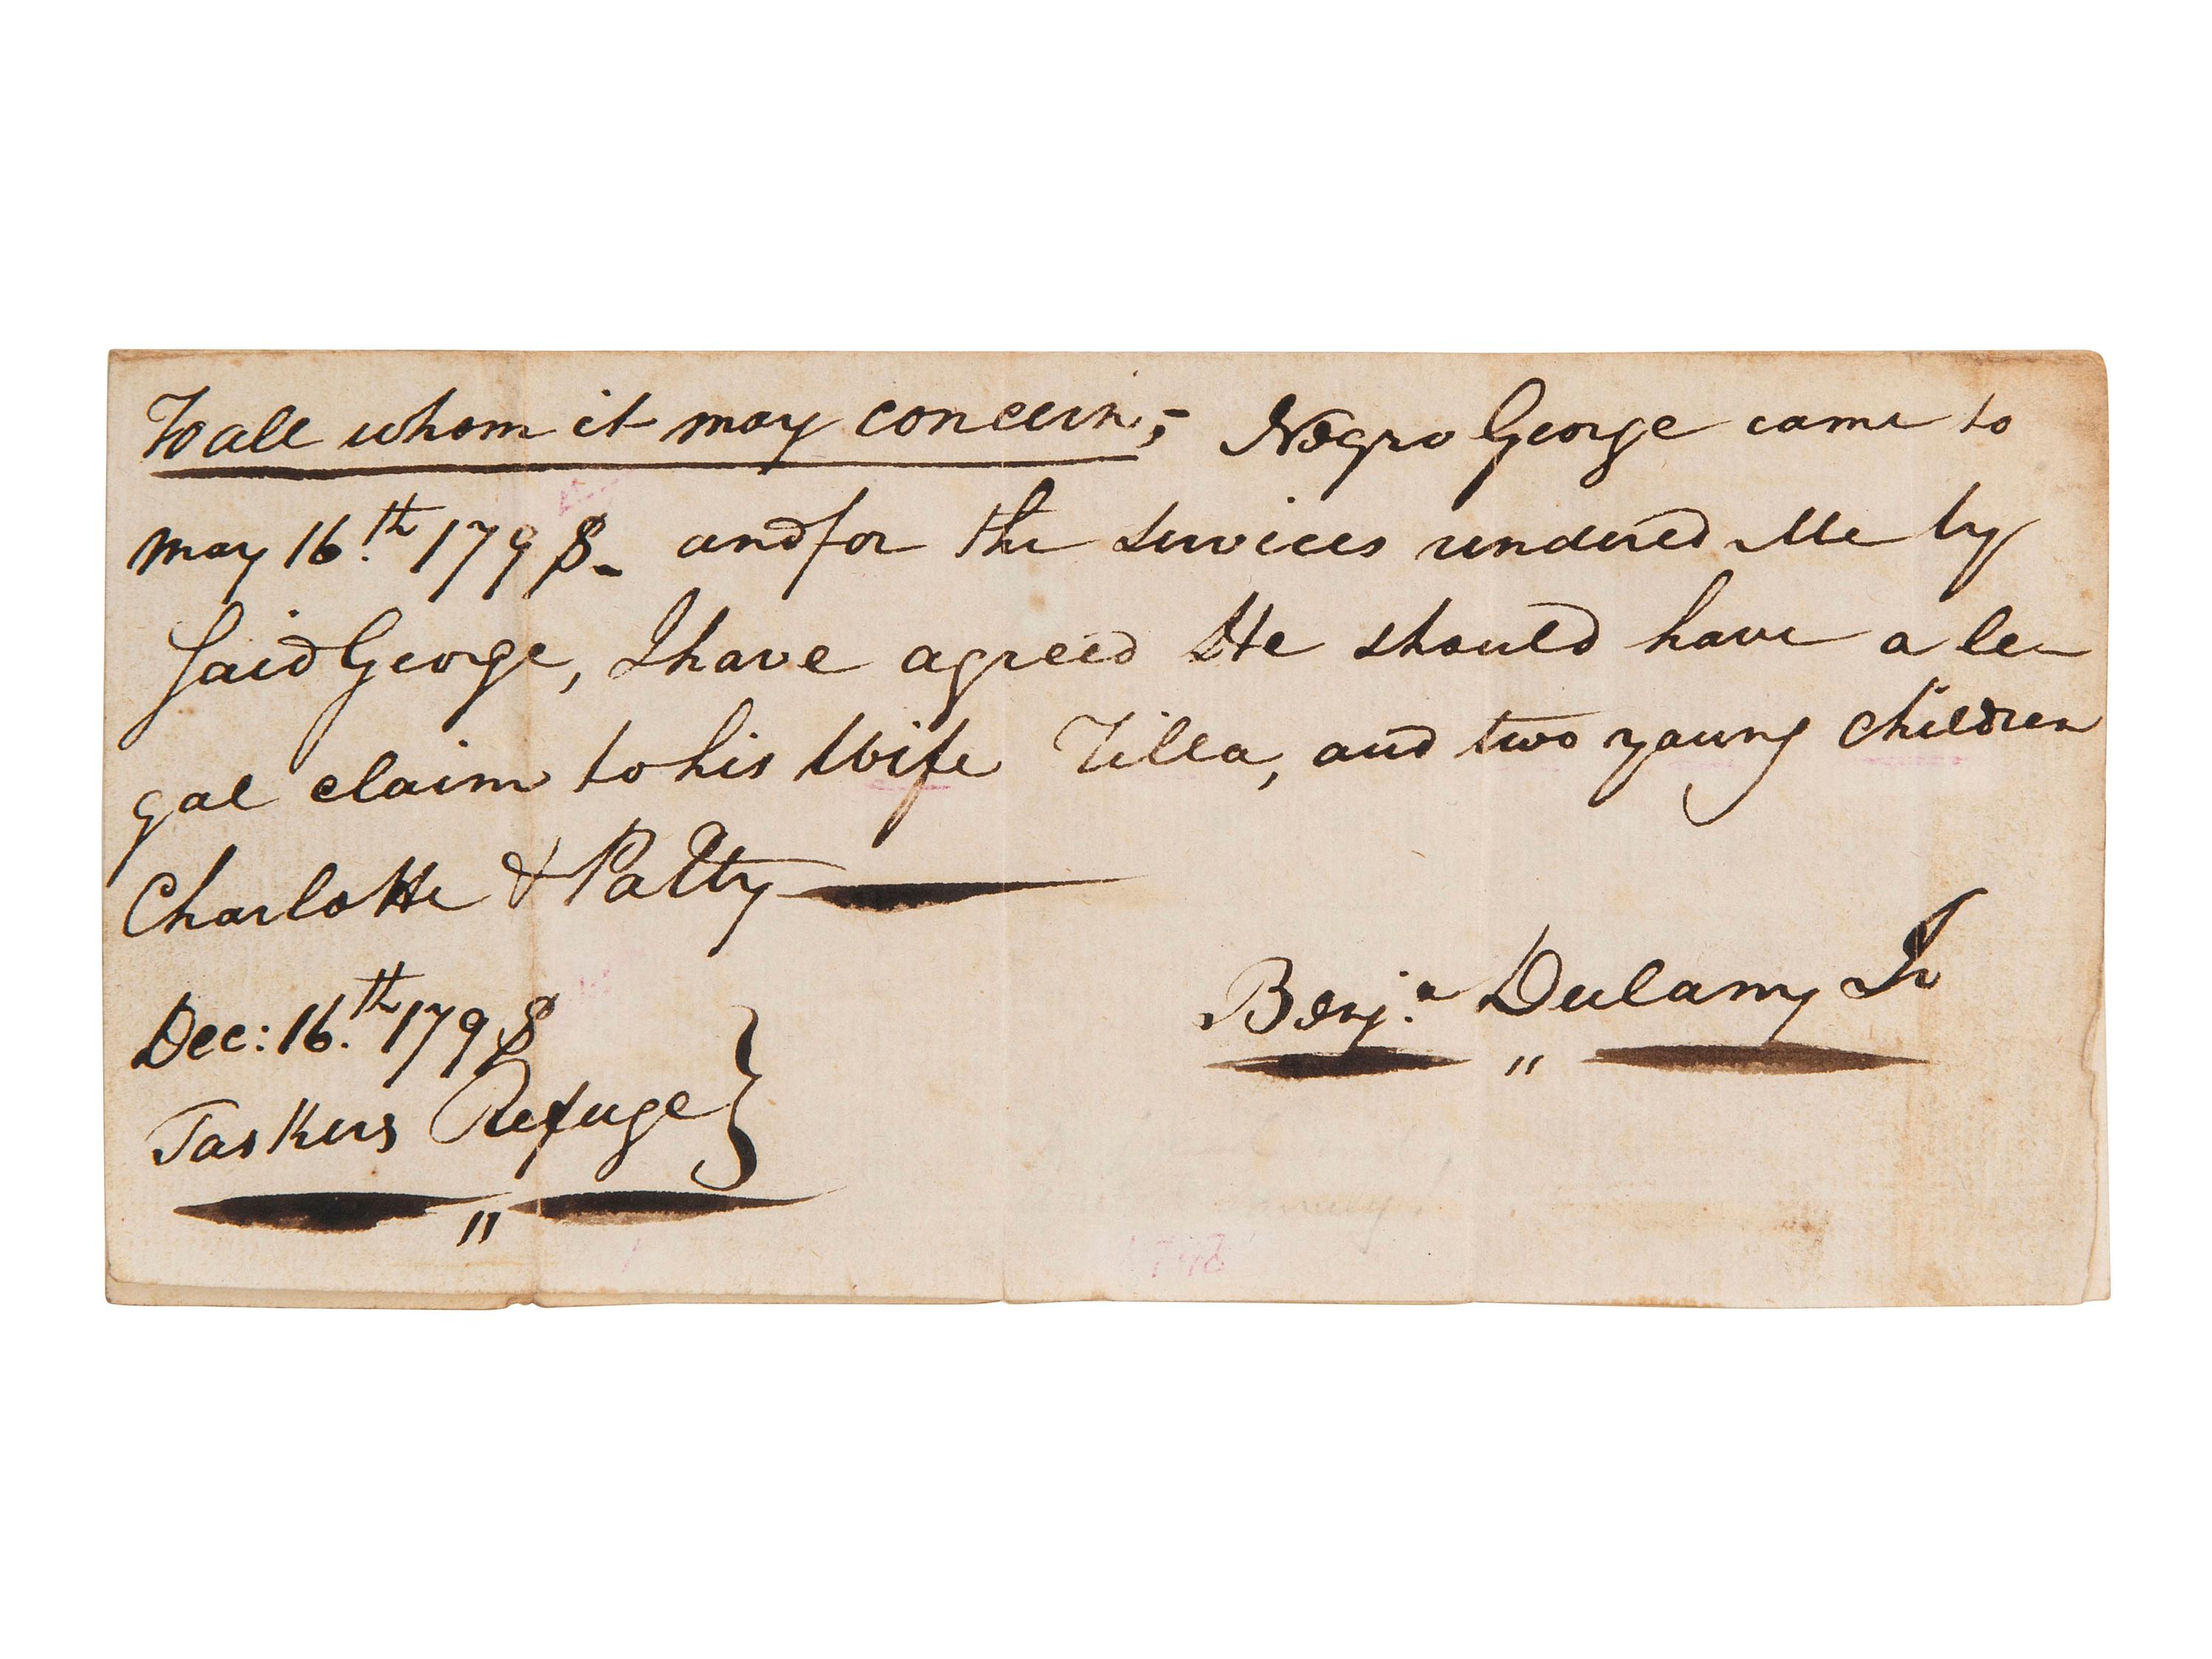 To all whom it may concern,- Negro George came to
may 16.th 1798- and for the services rendered Me by
said George, I have agreed He should have a le-
gal claim to his Wife Tilla, and two young children
Charlotte & Patty
Dec: 16.th 1798
Benj.a Dulany Jr
Taskers Refuge